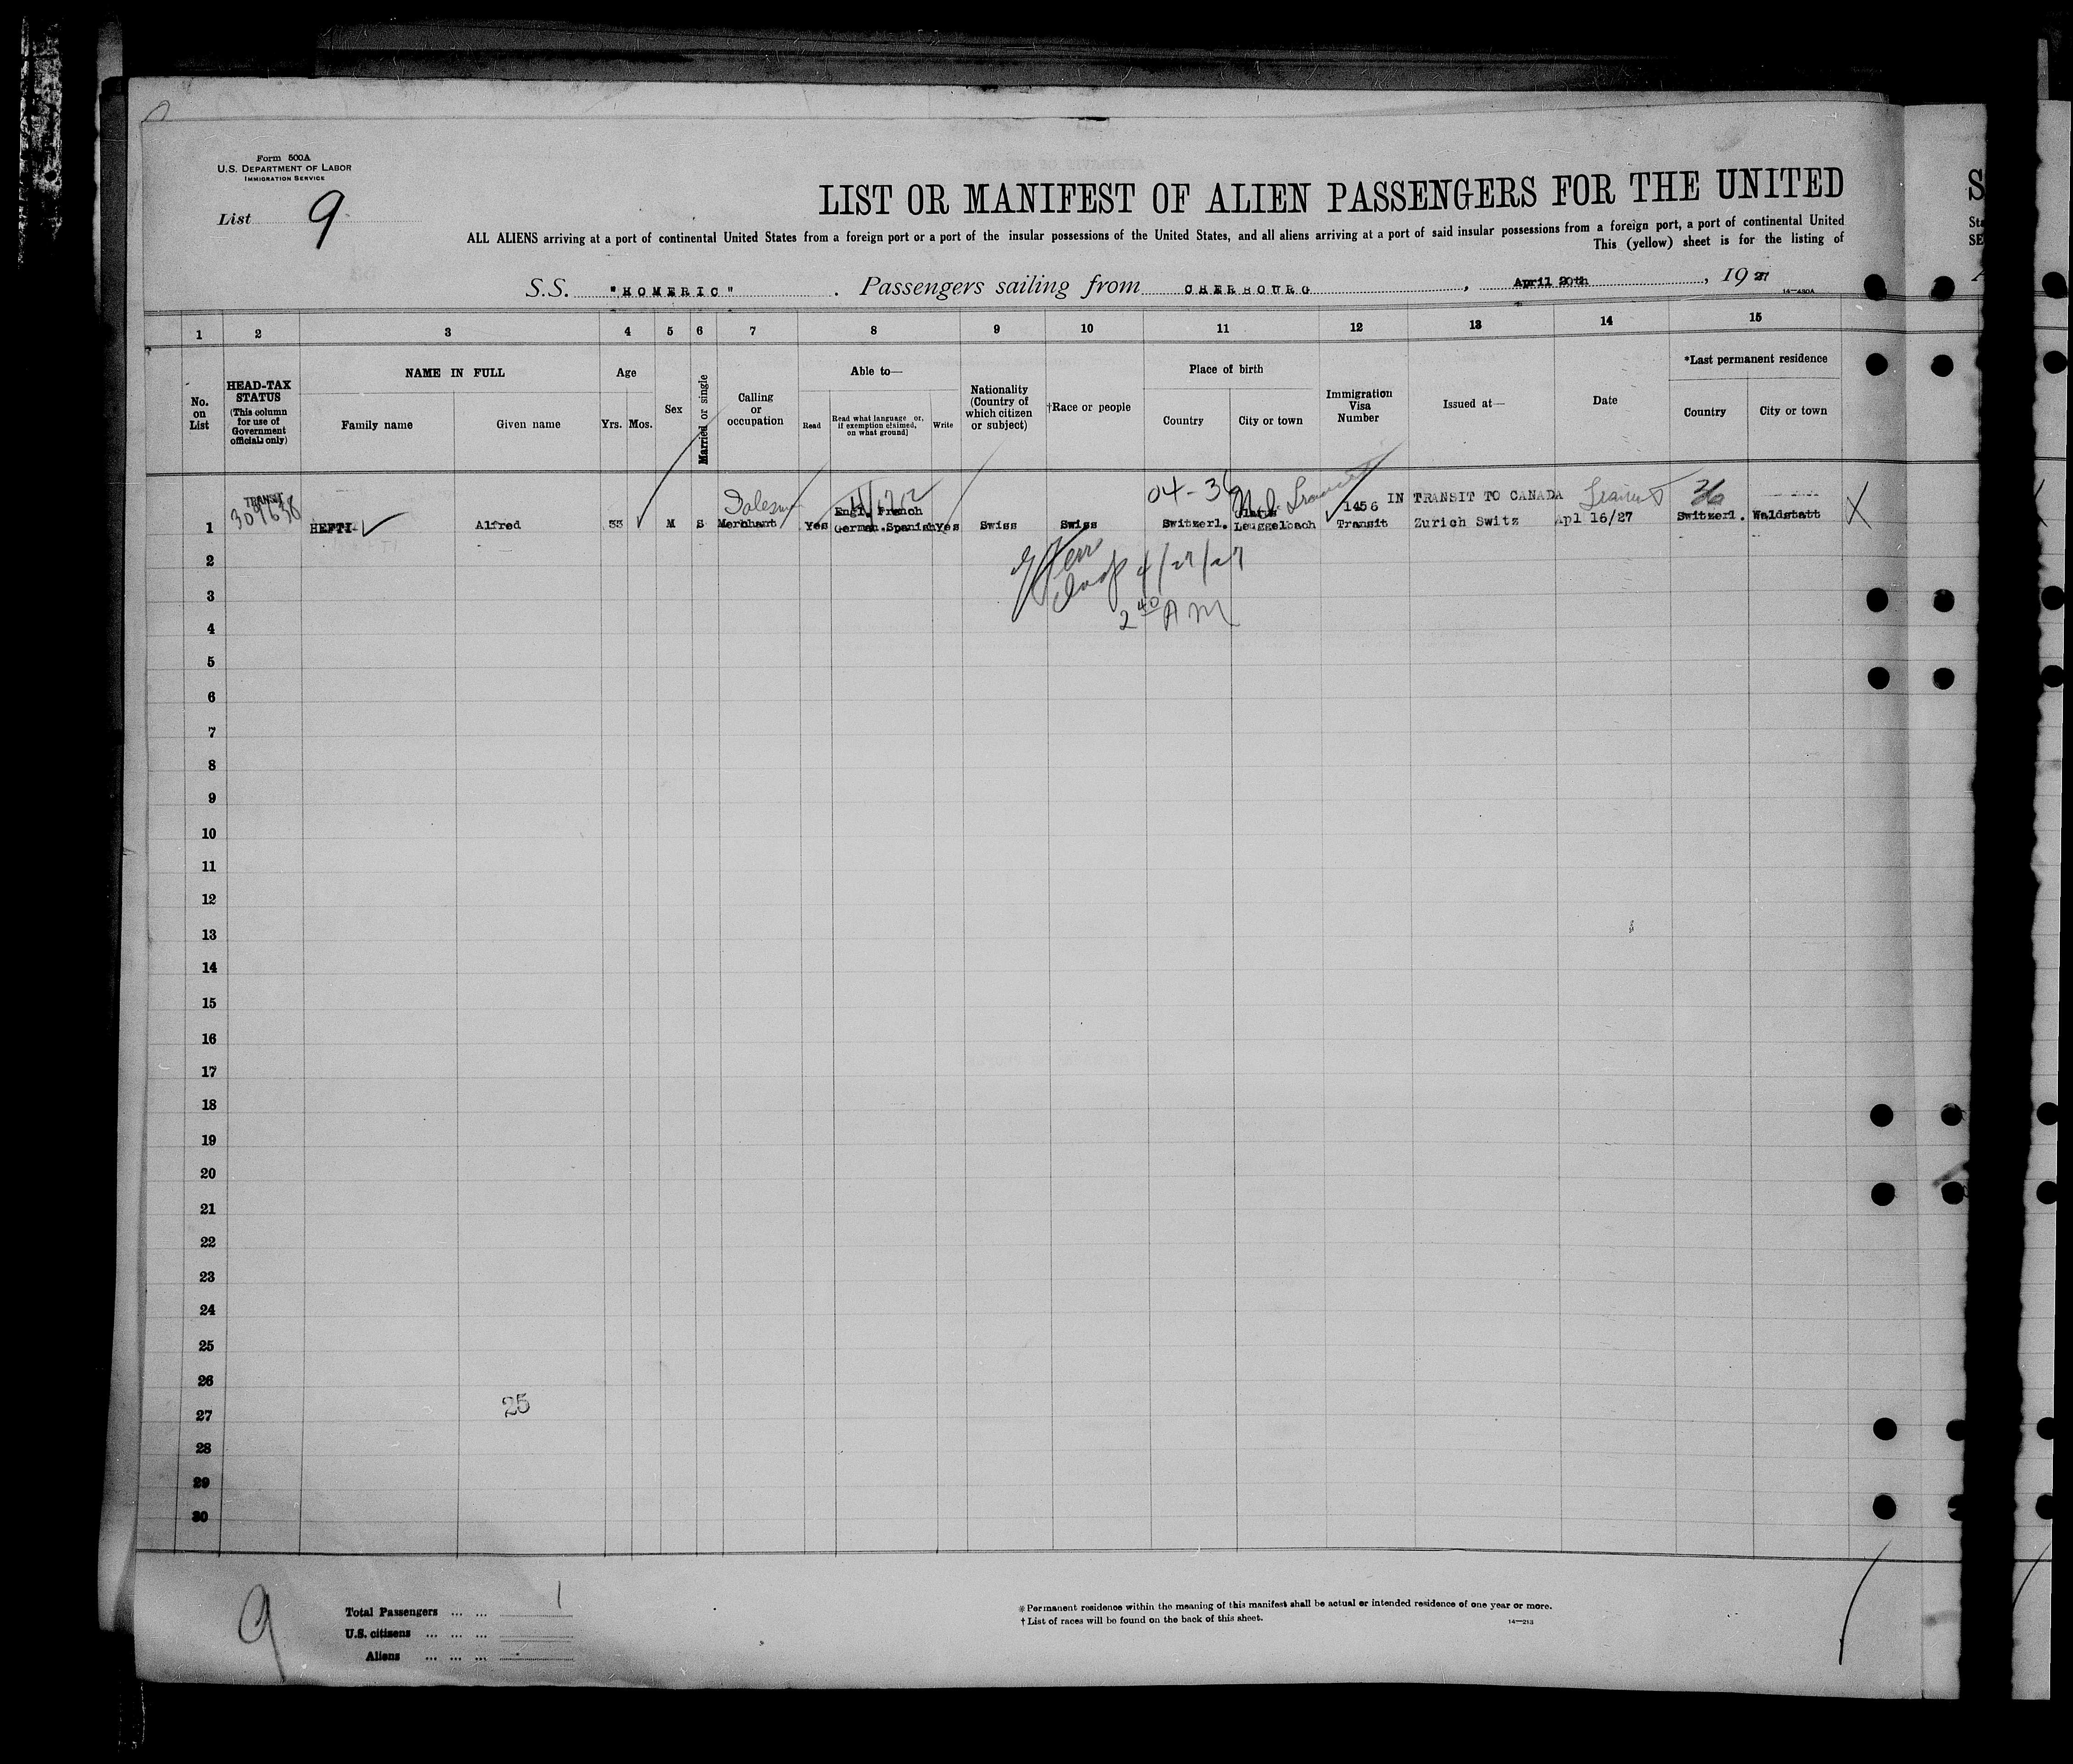 Form 500A
U.S. DEPARTMENT OF LABOR
IMMIGRATION SERVICE
List 9
LIST OR MANIFEST OF ALIEN PASSENGERS FOR THE UNITED
ALL ALIENS arriving at a port of continental United States from a foreign port or a port of the insular possessions of the United States, and all aliens arriving at a port of said insular possessions from a foreign port, a port of continental United
This (yellow) sheet is for the listing of
S.S. "HOMERIC". Passengers sailing from CHERBOURG, April 20th, 1927
14-430A
1 2 3 4 5 6 7 8 9 10 11 12 13 14 15
No. on List
HEAD-TAX STATUS
(This column for use of Government officials only)
NAME IN FULL
Family name Given name
Age
Yrs. Mos.
Sex
Married or single
Calling or occupation
Able to—
Read Read what language or, if exemption claimed, on what ground] Write
Nationality (Country of which citizen or subject)
†Race or people
Place of birth
Country City or town
Immigration Visa Number
Issued at—
Date
*Last permanent residence
Country City or town
TRANSIT
309638
04-36
1456 IN TRANSIT TO CANADA
Engl. French
1 HEFTI Alfred 33 M S Merchant Yes German.Spanish Yes Swiss Swiss Switzerl. Leuggelbach Transit Zurich Switz Apl 16/27 Switzerl. Waldstatt X
2
4/27/27
3
2 40 AM
4
5
6
7
8
9
10
11
12
13
14
15
16
17
18
19
20
21
22
23
24
25
26
25
27
28
29
30
9
Total Passengers ... ... 1
U.S. citizens ... ... ...
Aliens ... ... ...
* Permanent residence within the meaning of this manifest shall be actual or intended residence of one year or more.
† List of races will be found on the back of this sheet.
14—213